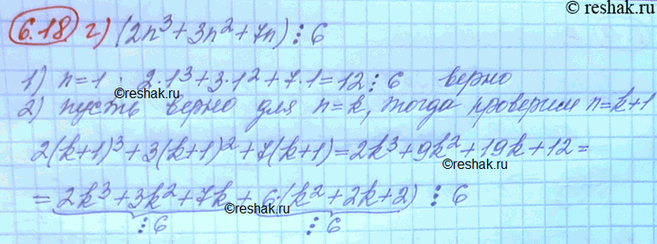 © reshak.ru
6.18 г) (2n³+3n²+7n) ⋮ 6
1) n=1 : 2·1³+3·1²+7·1=12 ⋮ 6 верно
©reshak.ru
2) пусть верно для n=k, тогда проверим n=k+1
2(k+1)³+3(k+1)²+7(k+1)=2k³+9k²+19k+12=
©reshak.ru
= 2k³+3k²+7k + 6(k²+2k+2) ⋮ 6
©reshak.ru
⋮6 ⋮6